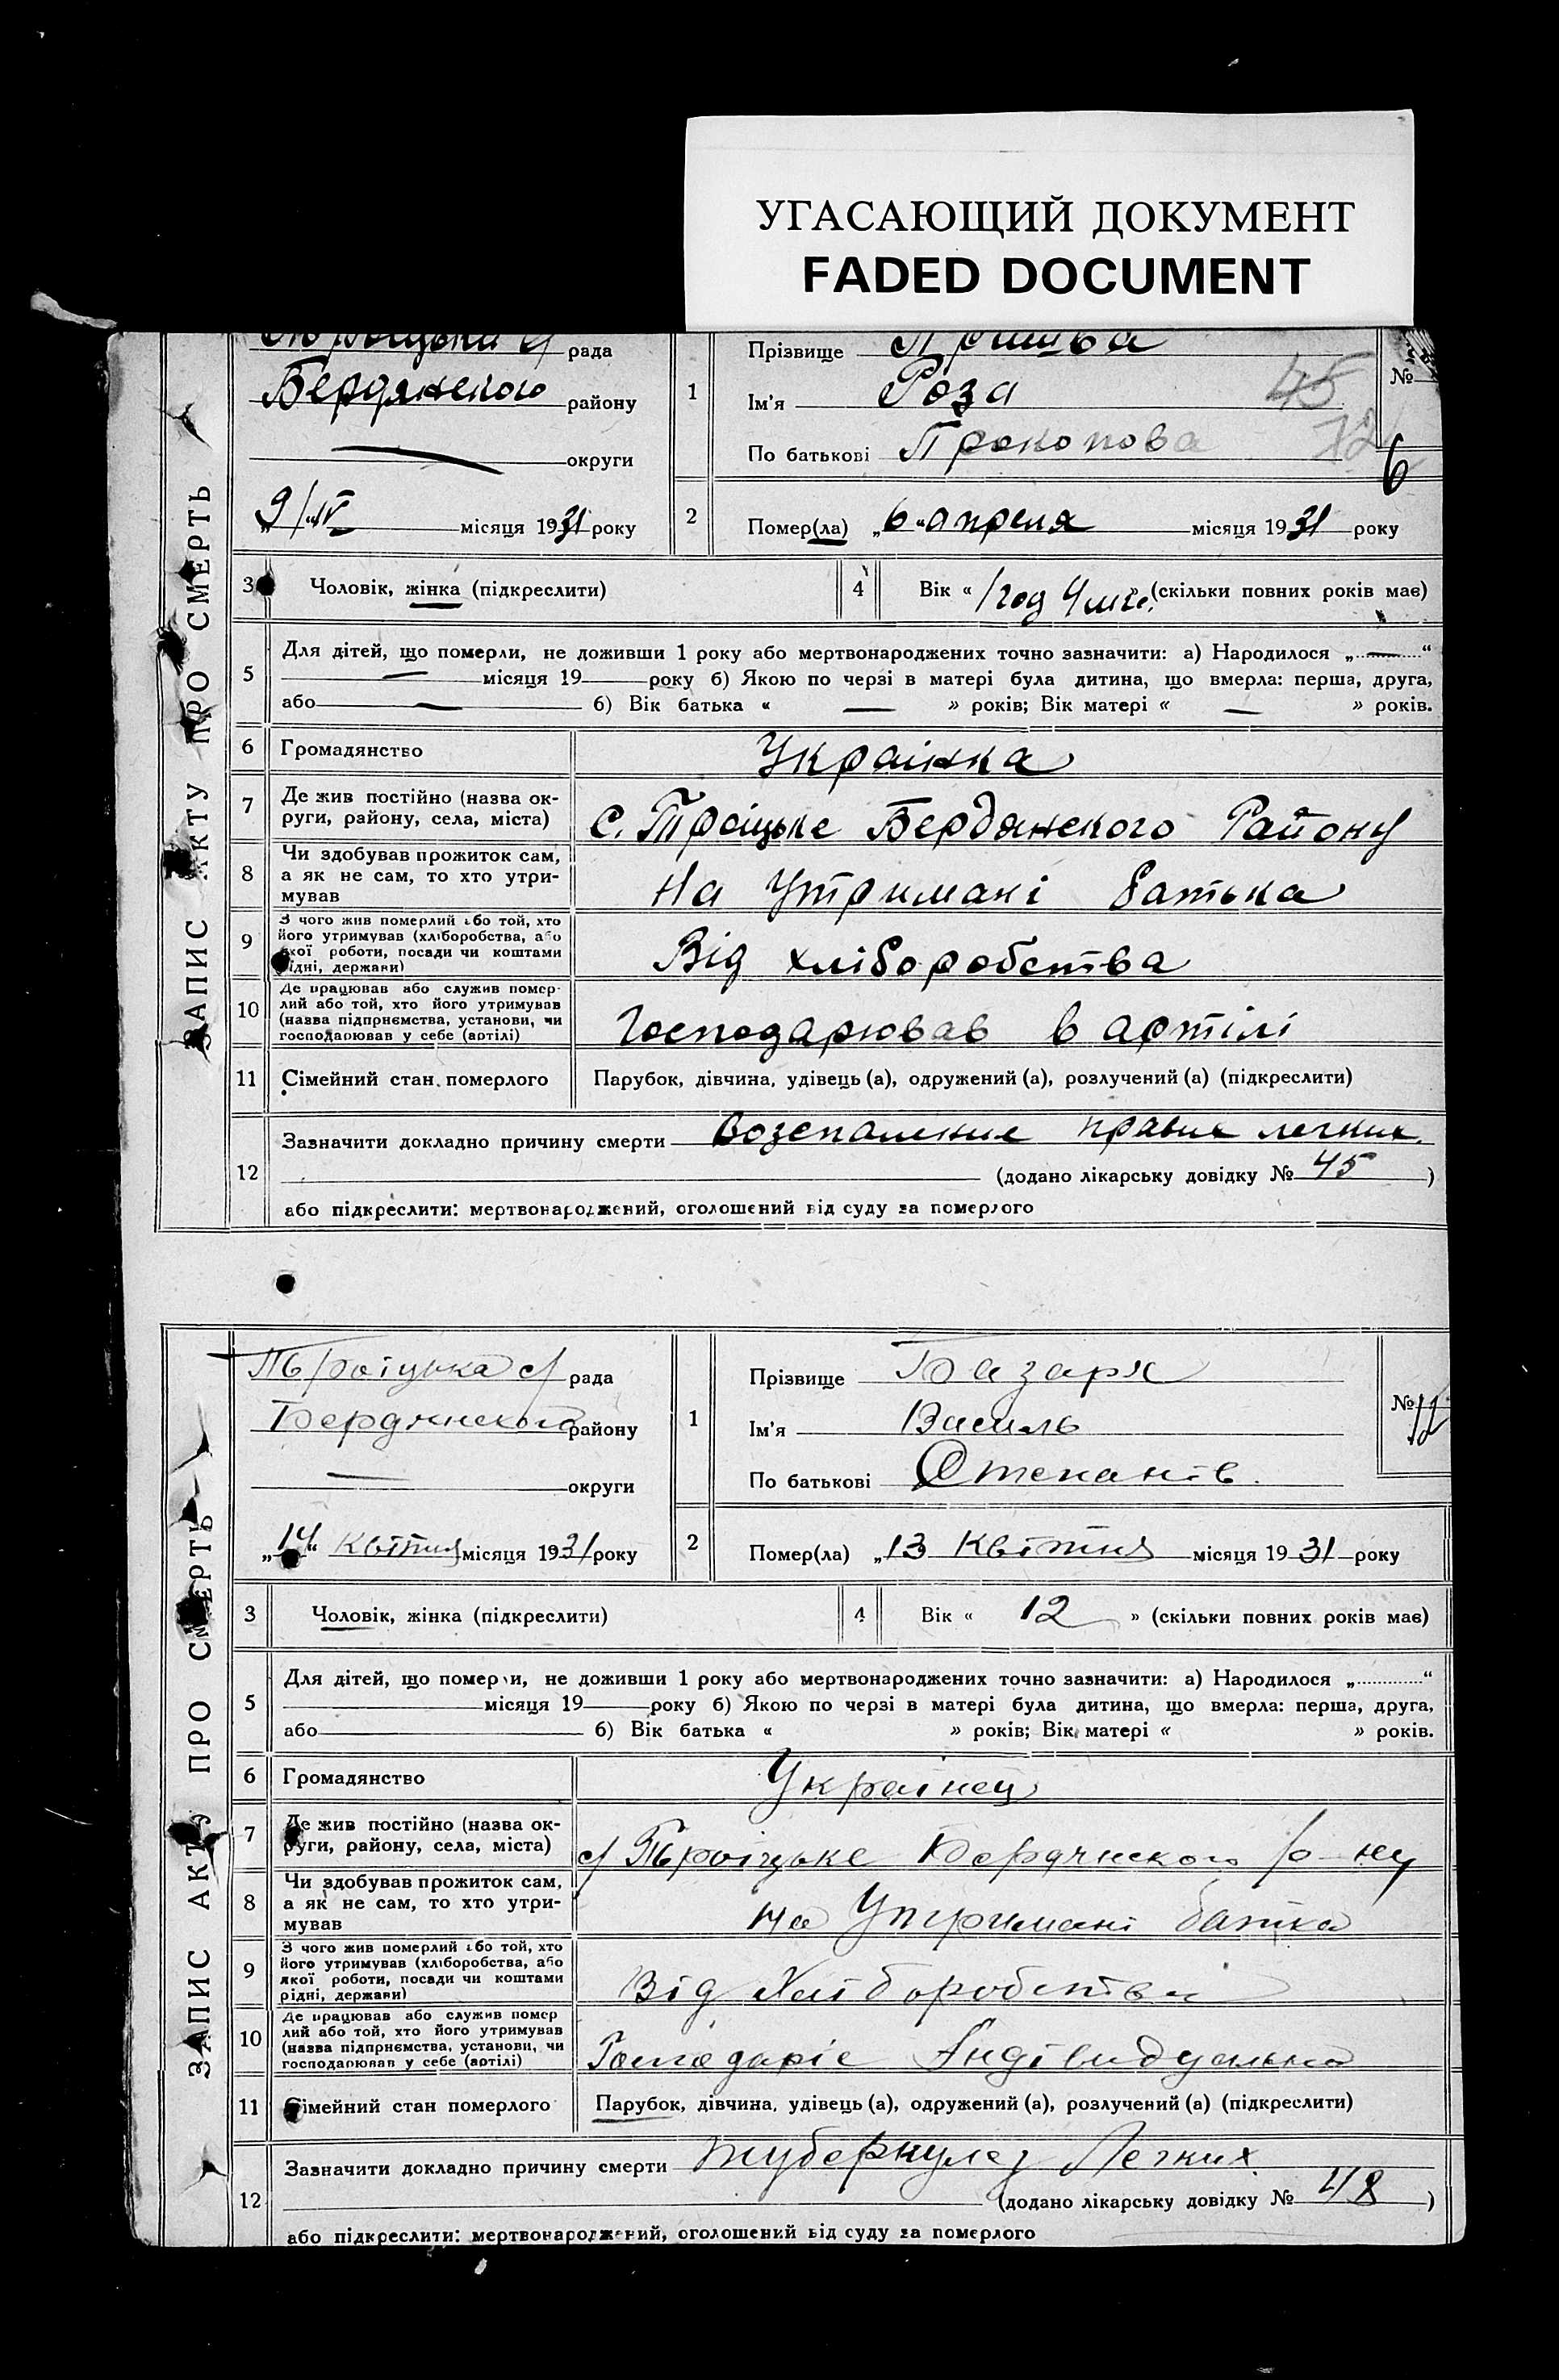 УГАСАЮЩИЙ ДОКУМЕНТ
FADED DOCUMENT
ЗАПИС АКТУ ПРО СМЕРТЬ
рада
Бердянского району
округи
„9/IV місяця 1931 року
1
Прізвище
Ім'я Роза
По батькові Прокопова
45
12
№
6
2
Помер(ла) „6“ апреля місяця 1931 року
3 Чоловік, жінка (підкреслити)
4 Вік « 1 год 4 мес. (скільки повних років має)
5
Для дітей, що померли, не доживши 1 року або мертвонароджених точно зазначити: а) Народилося „—“
— місяця 19 року б) Якою по черзі в матері була дитина, що вмерла: перша, друга,
або — б) Вік батька « — » років; Вік матері « — » років.
6 Громадянство Украінка
7 Де жив постійно (назва ок-
руги, району, села, міста)
с. Троіцьке Бердянского Району
8 Чи здобував прожиток сам,
а як не сам, то хто утри-
мував
На Утримані батька
9 З чого жив померлий або той, хто
його утримував (хліборобства, або
якої роботи, посади чи коштами
рідні, держави)
Від хліборобства
10 Де працював або служив помер-
лий або той, хто його утримував
(назва підприємства, установи, чи
господарював у себе (артілі)
Господарював в артілі
11 Сімейний стан померлого Парубок, дівчина, удівець (а), одружений (а), розлучений (а) (підкреслити)
12
Зазначити докладно причину смерти Возспаление правих легких.
(додано лікарську довідку № 45 )
або підкреслити: мертвонароджений, оголошений від суду за померлого
ЗАПИС АКТУ ПРО СМЕРТЬ
Тьроіцька с/ рада
Бердянского району
— округи
„14“ Квітня місяця 1931 року
1
Прізвище Базаря
Ім'я Василь
По батькові Степанів.
№ 12
2
Помер(ла) „13 Квітня місяця 1931 року
3 Чоловік, жінка (підкреслити)
4 Вік « 12 » (скільки повних років має)
5
Для дітей, що померли, не доживши 1 року або мертвонароджених точно зазначити: а) Народилося „............“
місяця 19 року б) Якою по черзі в матері була дитина, що вмерла: перша, друга,
або б) Вік батька « » років; Вік матері « » років.
6 Громадянство Украінец
7 Де жив постійно (назва ок-
руги, району, села, міста)
с/ Тьроіцьке Бердянского р-ну
8 Чи здобував прожиток сам,
а як не сам, то хто утри-
мував
На Утримані батка
9 З чого жив померлий або той, хто
його утримував (хліборобства, або
якої роботи, посади чи коштами
рідні, держави)
Від Хліборобства
10 Де працював або служив помер
лий або той, хто його утримував
(назва підприємства, установи, чи
господарював у себе (артілі)
Господаріе Індівидуально
11 Сімейний стан померлого Парубок, дівчина, удівець (а), одружений (а), розлучений (а) (підкреслити)
12
Зазначити докладно причину смерти туберкулез Легких
(додано лікарську довідку № 48 )
або підкреслити: мертвонароджений, оголошений від суду за померлого